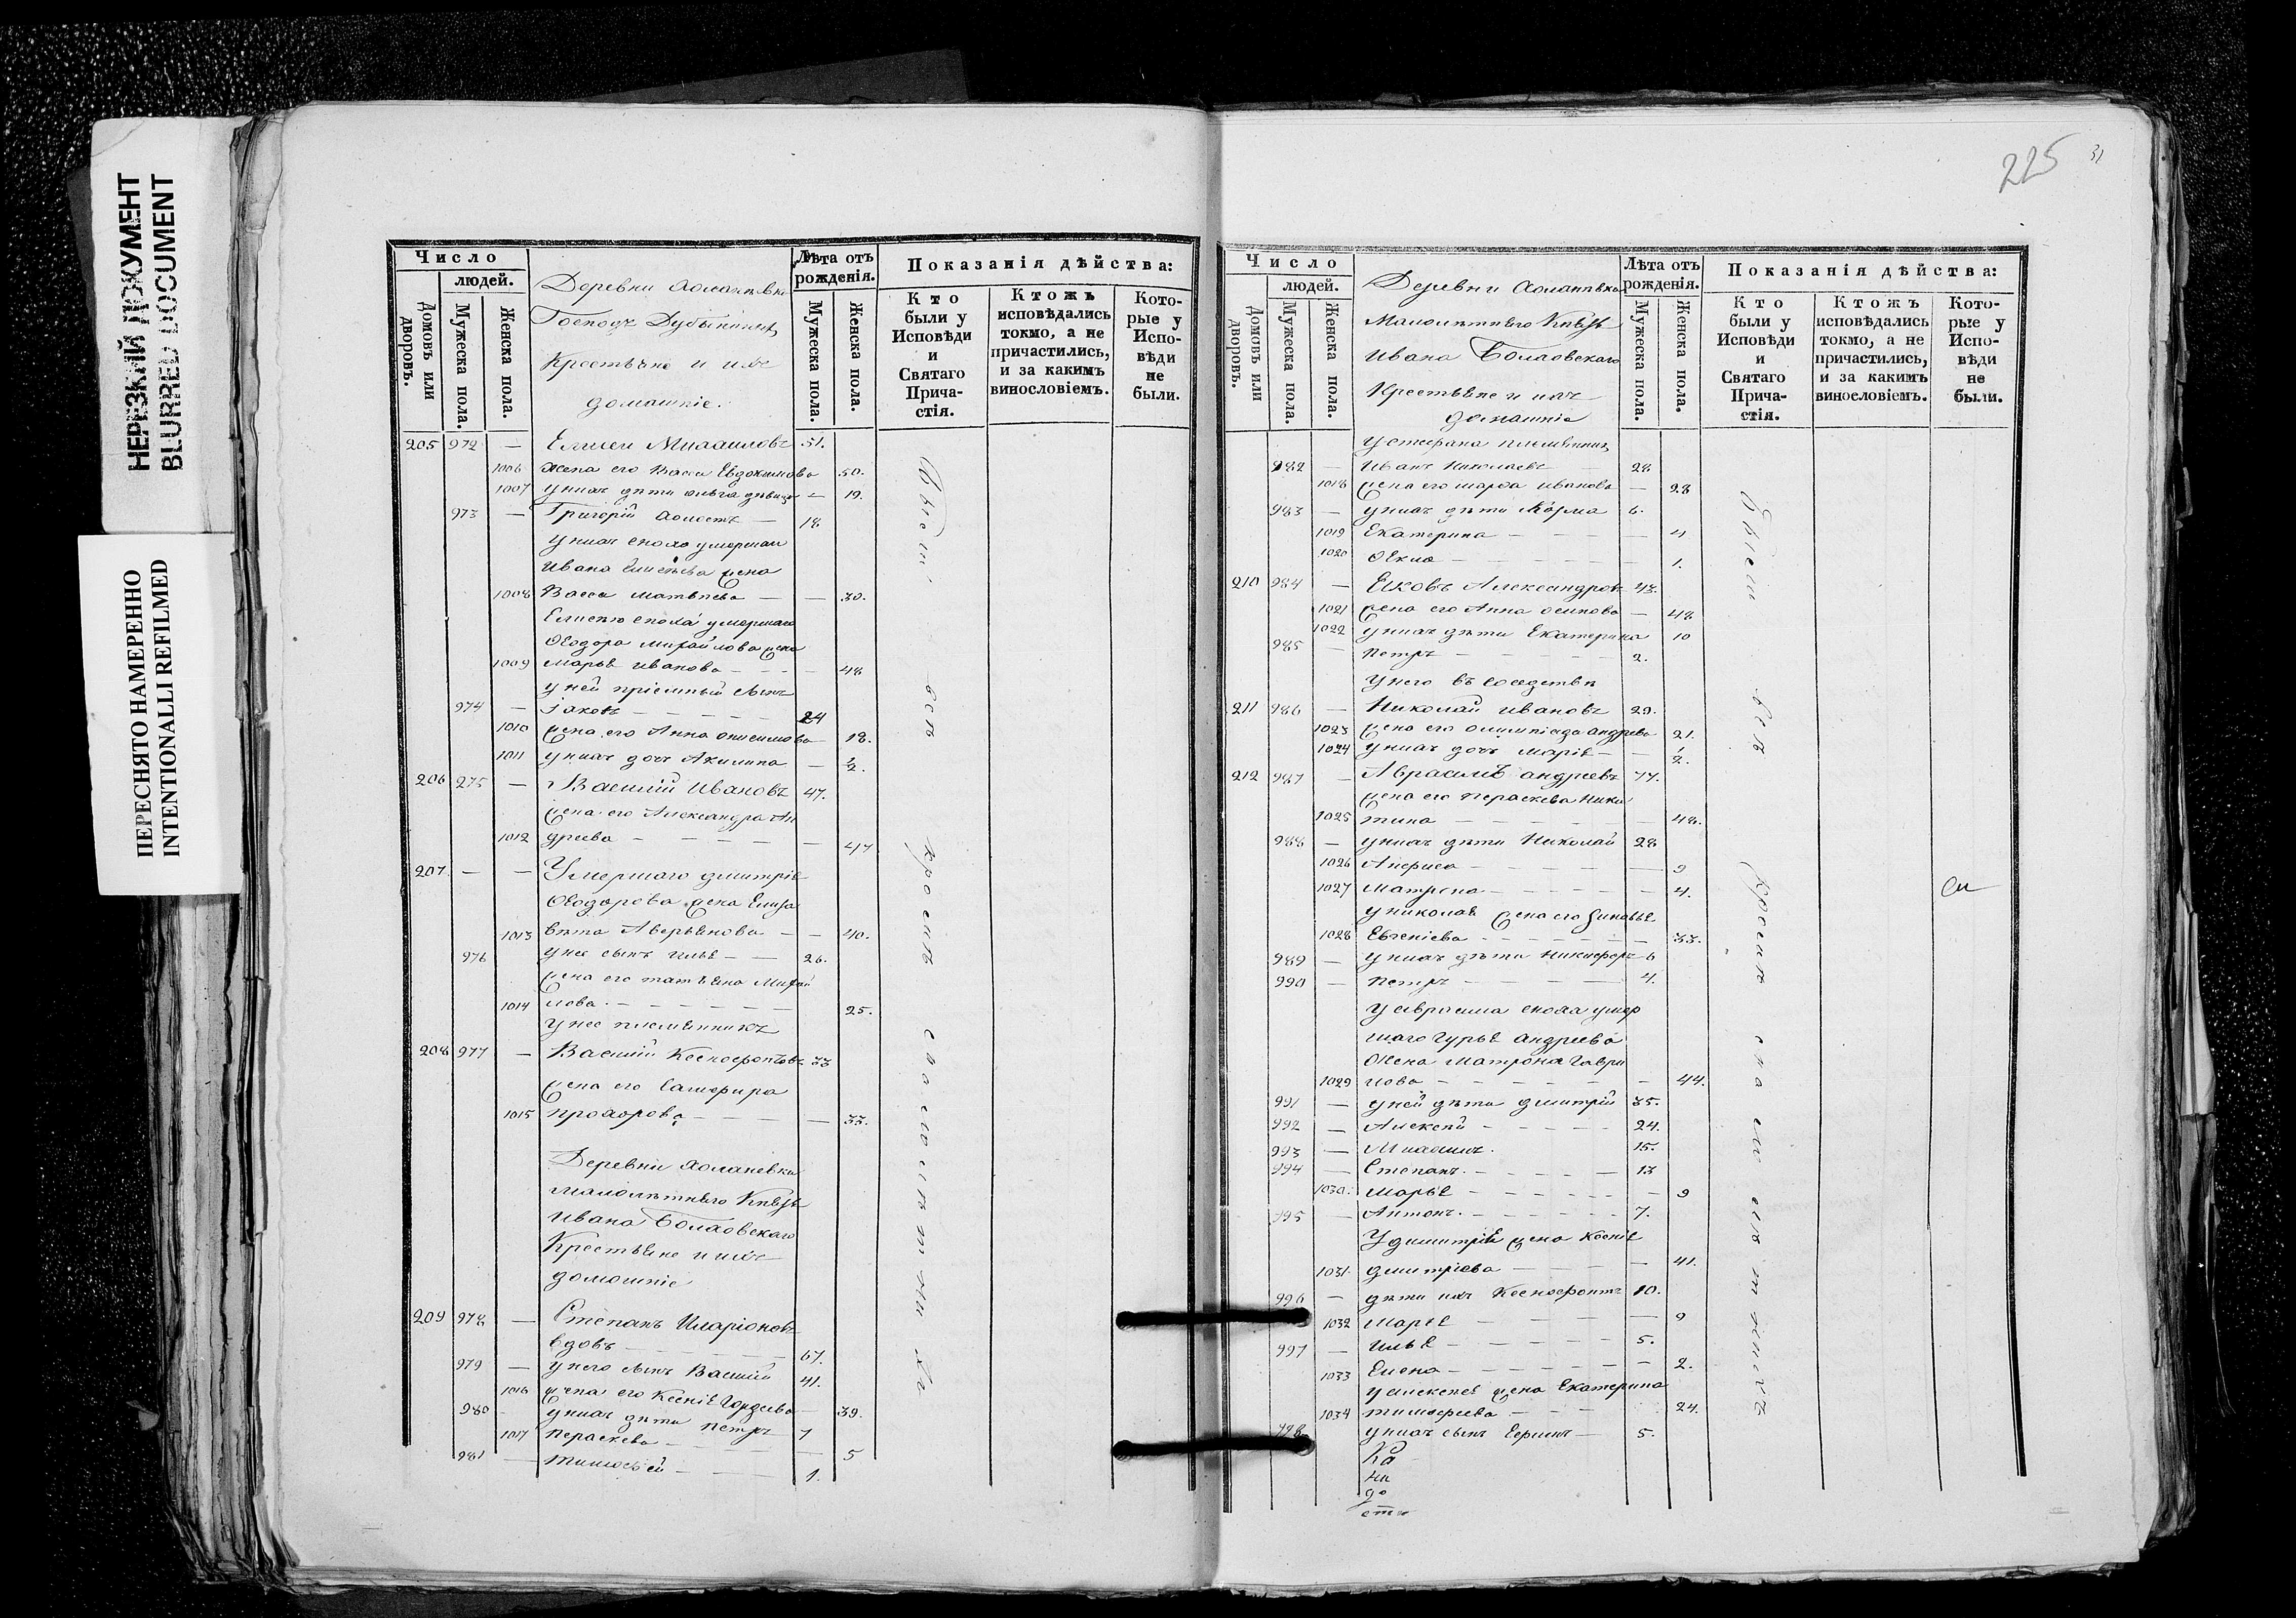 НЕРЕЗКИЙ ДОКУМЕНТ
BLURRED DOCUMENT
ПЕРЕСНЯТО НАМЕРЕННО
INTENTIONALLI REFILMED
Число
людей.
Домовъ или дворовъ.
Мужеска пола.
Женска пола.
Деревни
Господъ
Крестьяне и ихъ
домашніе.
Лѣта отъ рожденія.
Мужеска пола.
Женска пола.
Показанія дѣйства:
Кто были у Исповѣди и Святаго Причастія.
Ктожъ исповѣдались токмо, а не причастились, и за какимъ винословіемъ.
Которые у Исповѣди не были.
205 972 — Елисей Михаиловъ 51.
1006 жена его Васса Евдокимова 50.
1007 у нихъ дѣти Ольга девица — 19.
973 — Григорій холостъ — 18
у нихъ сноха умершаго
Ивана Елисѣева жена
1008 Васса Матвѣева — — 30.
Елисею сноха умершаго
Ѳеодора Михайлова жена
1009 Марья Иванова — — — 48
у ней пріемный сынъ
974 — Іаковъ — — — — 24
1010 жена его Анна Онисимова 18.
1011 у нихъ дочь Акилина — ½.
206 975 — Василій Ивановъ 47.
жена его Александра Ан
1012 дреева — — — — — 47
207. — — Умершаго Димитрія
Ѳеодорова жена Елиза
1013 вѣта Аверьянова — — 40.
976 у нее сынъ Илья — — 26.
жена его Татьяна Михай
1014 лова. — — — — — 25.
у нее племянникъ
208 977 — Василій Ксенофонтовъ 33
жена его Сапфира
1015 Прохорова — — — — 33.
Деревни
малолѣтняго Князя
Ивана
Крестьяне и ихъ
домашніе
209 978 — Степанъ Иларіоновъ
вдовъ — — — — 67.
979 — у него сынъ Василій 41.
1016 жена его Ксенія Гордеева — 39.
980 - у нихъ дѣти Петръ 7
1017 Параскева — — — — 5
981 — Тимоѳей — — — 1.
были всѣ кромѣ
225
31
Число
людей.
Домовъ или дворовъ.
Мужеска пола.
Женска пола.
Деревни
Малолѣтняго Князя
Ивана
Крестьяне и ихъ
домашніе
Лѣта отъ рожденія.
Мужеска пола.
Женска пола.
Показанія дѣйства:
Кто были у Исповѣди и Святаго Причастія.
Ктожъ исповѣдались токмо, а не причастились, и за какимъ винословіемъ.
Которые у Исповѣди не были.
у Степана племянникъ
982 — Иванъ Николаевъ — 28
1018 жена его Марѳа Иванова — 28
983 — у нихъ дѣти 6.
1019 Екатерина — — — — 4
1020 — — — — 1.
210 984 — Яковъ Александровъ 43.
1021 жена его Анна Осипова — 48
1022 у нихъ дѣти Екатерина 10
985 — Петръ — — — — — 2.
У него въ соседствѣ
211 986 — Николай Ивановъ 29.
1023 жена его Олимпіада Андреева 21.
1024 у нихъ дочь Марія — — ½.
212 987 — Авраамъ Андреевъ 77.
жена его Параскева Ники
1025 тина — — — — — 48.
988 — у нихъ дѣти Николай 28
1026 Анфиса — — — — — 9
1027 Матрона — — — — — 4.
у Николая жена его Зиновья
1028 Евгеніева — — — — — 33.
989 — у нихъ дѣти Никифоръ 6
990 — Петръ — — — — 4.
у Авраама сноха умер
шаго Гурья Андреева
жена Матрона Гаври
1029 лова — — — — — — 44.
991 — у ней дѣти Димитрій 25.
992 — Алексѣй — — — — 24.
993 — Михаилъ. 15.
994 — Степанъ. — — — — 13
1030. Марья — — — — — 9
995 — Антонъ. — — — — 7.
У Димитрія жена Ксенія
1031. Дмитріева — — — — 41.
996 — дѣти ихъ Ксенофонтъ 10.
1032 Марья — — — — 9
997 — Илья — — — — 5.
1033 Елена — — — — — 2.
у Алексея жена Екатерина
1034 Тимофеева — — — 24.
998 у нихъ сынъ — 5.
были всѣ кромѣ